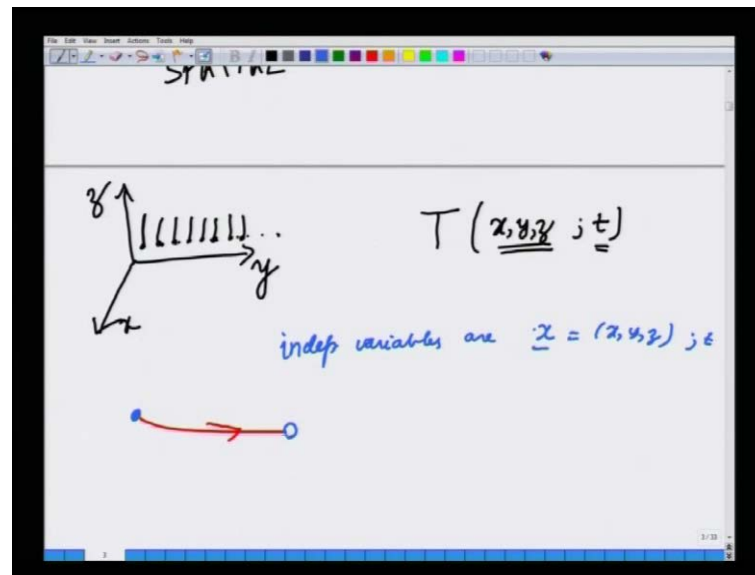 File Edit View Insert Actions Tools Help
SPATIAL
z
y
x
T (x,y,z ; t)
indep variables are x = (x,y,z) ; t
3/33
3